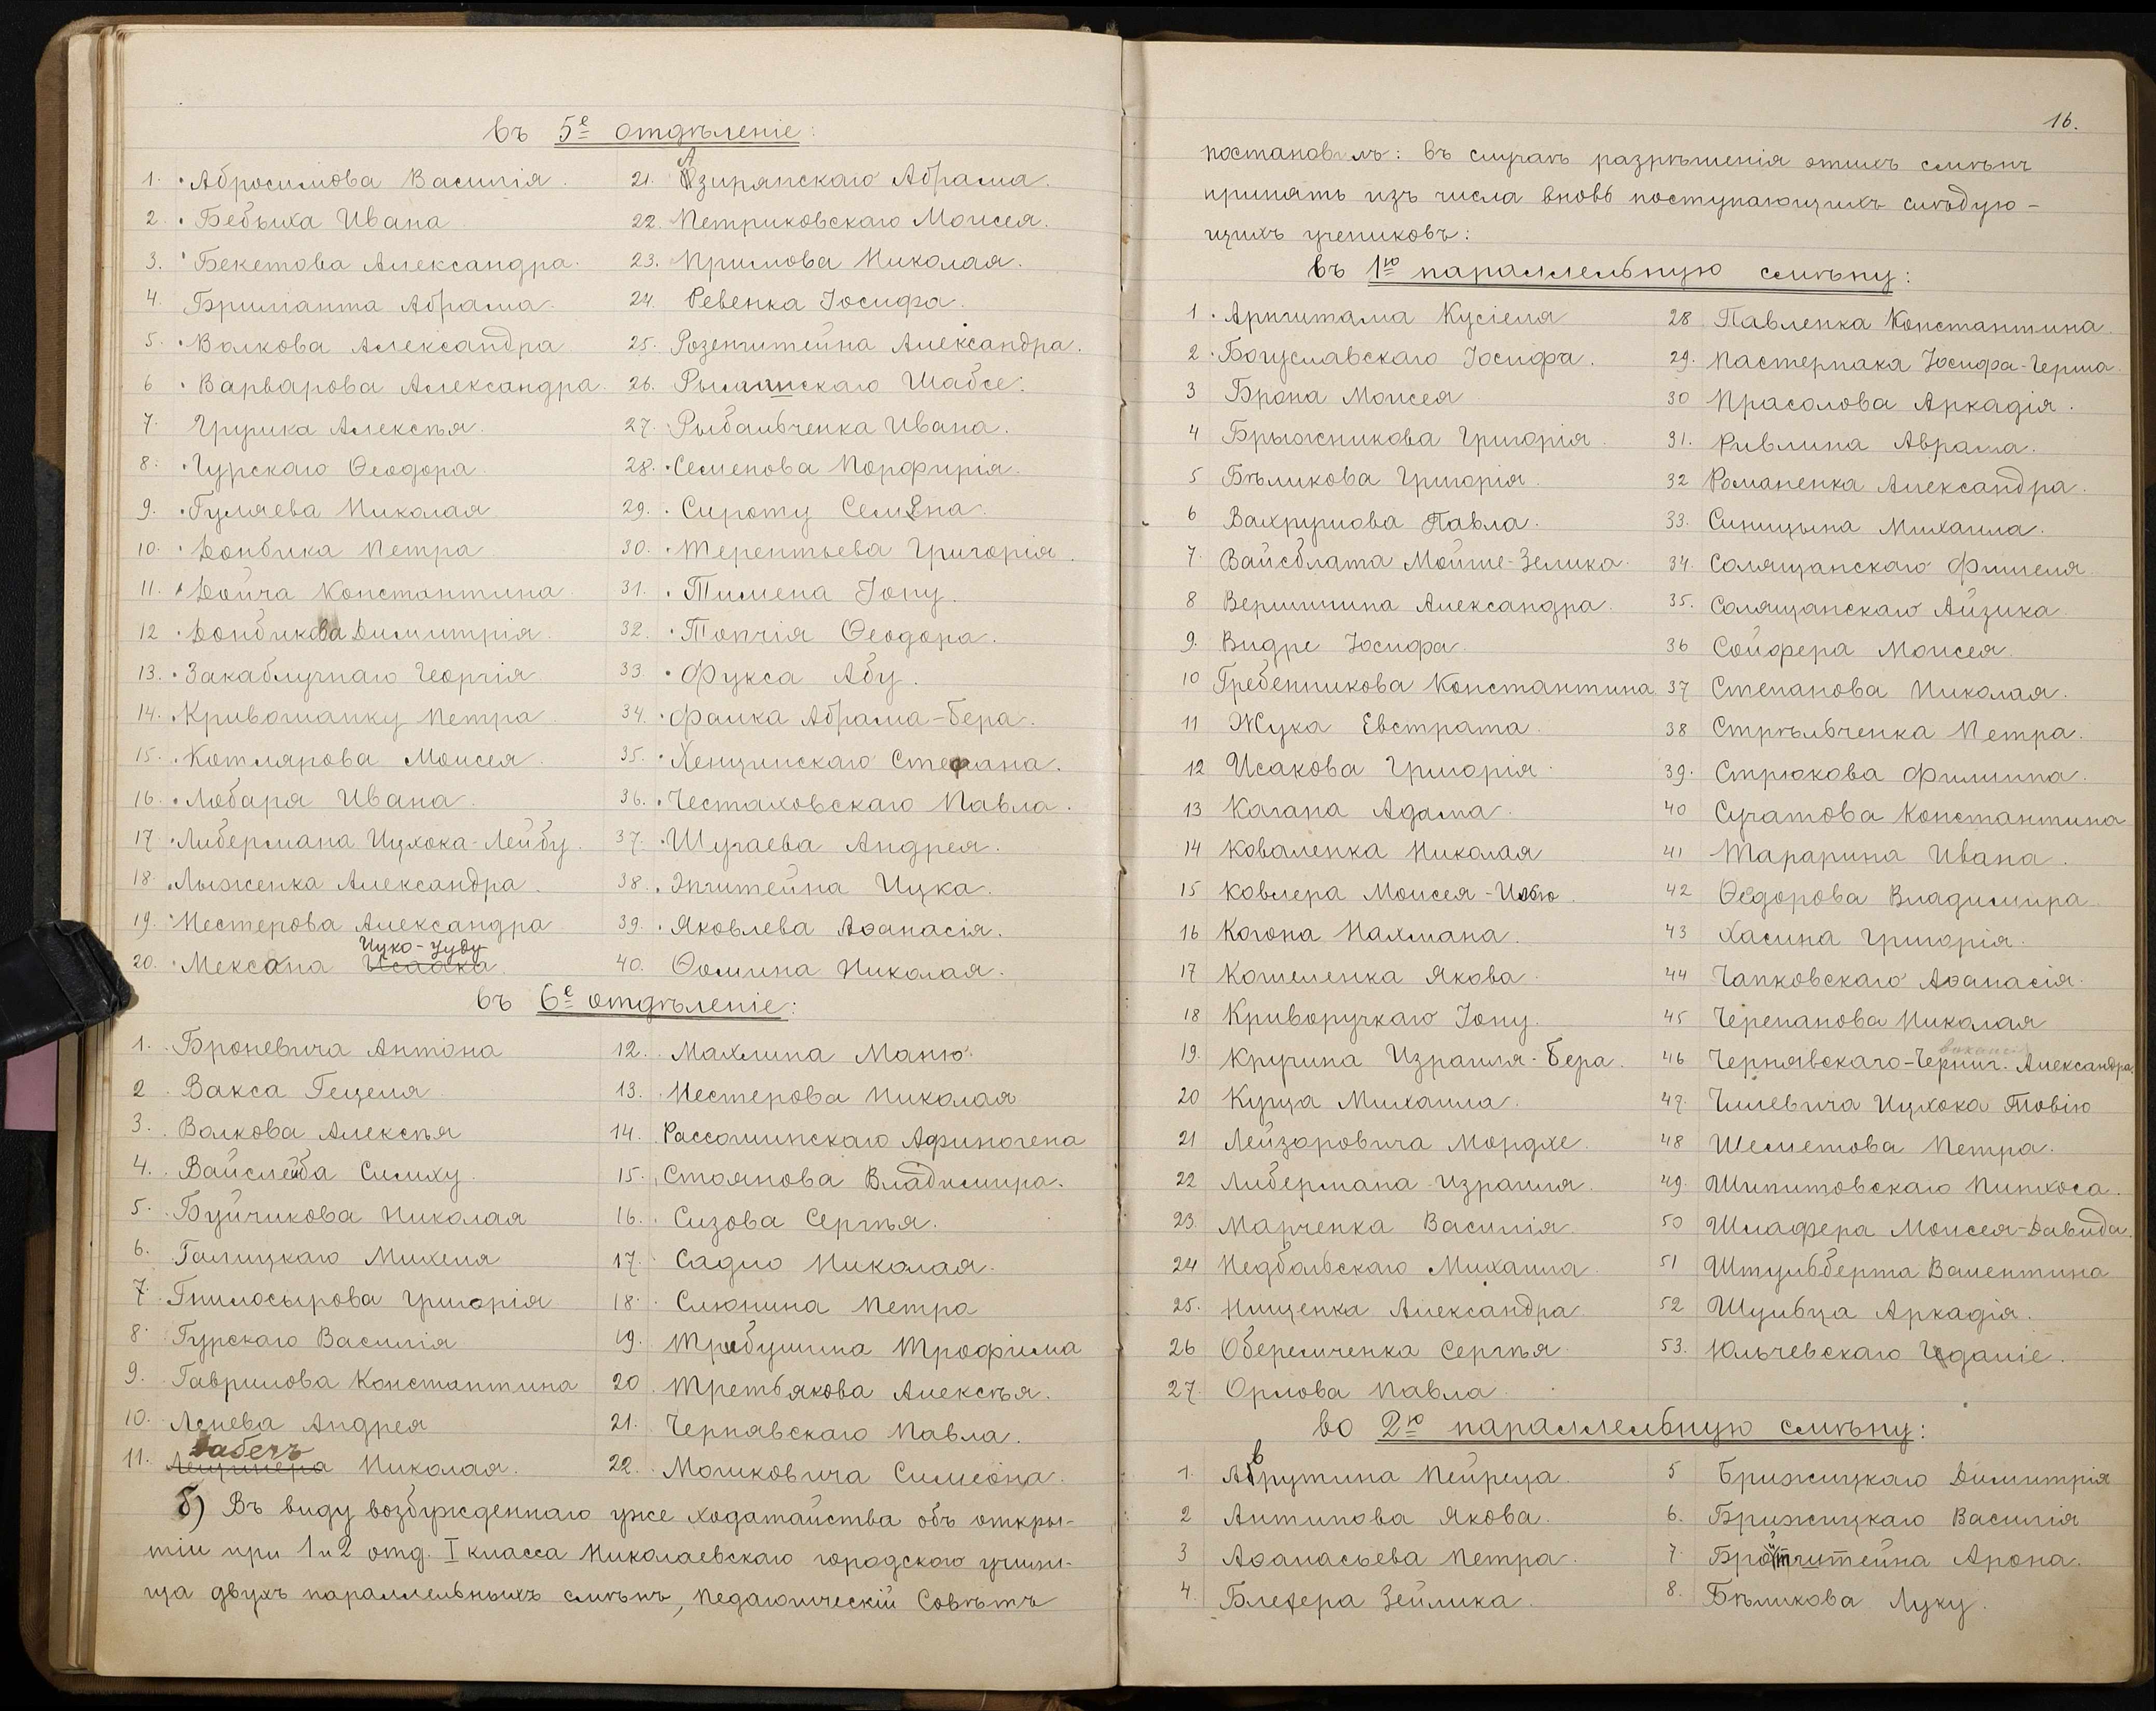 въ 5е отдѣленіе:
1. Абросимова Василія.
2. Бебыха Ивана
3. Бекетова Александра.
4. Брилианта Абрама.
5. Волкова Александра
6. Варварова Александра.
7. Грушка Алексѣя.
8. Гурскаго Ѳеодора.
9. Гуляева Николая
10. Донбика Петра
11. Дойча Константина
12. Донбикова Димитрія.
13. Закаблучнаго Георгія
14. Кривошапку Петра.
15. Котлярова Моисея.
16. Лобаря Ивана.
17. Либермана Ицхока-Лейбу.
18. Лыженка Александра.
19. Нестерова Александра
Ицко-Іуду
20. Мексана Исаака.
21. Азирянскаго Абрама.
22. Петриковскаго Моисея.
23. Примова Николая.
24. Ревенка Іосифа.
25. Розенштейна Александра.
26. Рымшискаго Шабсе.
27. Рыбальченка Ивана.
28. Семенова Порфирія.
29. Сироту Семена.
30. Терентьева Григорія.
31. Тимена Іону.
32. Топчія Ѳеодора.
33. Фукса Абу.
34. Фалка Абрама-Бера.
35. Хенцинскаго Стефана.
36. Честаховскаго Павла.
37. Шугаева Андрея.
38. Эпштейна Ицка.
39. Яковлева Аѳанасія.
40. Ѳомина Николая.
въ 6е отдѣленіе:
1. Броневича Антона
2. Вакса Гецеля
3. Волкова Алексѣя
4. Вайслейба Симху.
5. Буйчикова Николая
6. Галицкаго Михеля
7. Гнилосырова Григорія
8. Гурскаго Василія
9. Гаврилова Константина
10. Лешева Андрея
11. Николая.
12. Махлина Маню.
13. Нестерова Николая
14. Рассошинскаго Афиногена
15. Стоянова Владимира.
16. Сизова Сергѣя.
17. Садло Николая.
18. Слюнина Петра
19. Требушина Трофима
20. Третьякова Алексѣя.
21. Чернявскаго Павла.
22. Мошковича Симеона.
б) Въ виду возбужденнаго уже ходатайства объ откры-
тіи при 1 и 2 отд. I класса Николаевскаго городскаго учили-
ща двухъ параллельныхъ смѣнъ, Педагогическій Совѣтъ
16.
постановилъ: въ случаѣ разрѣшенія этихъ смѣнъ
принять изъ числа вновь поступающихъ слѣдую-
щихъ учениковъ:
въ 1ю параллельную смѣну:
1. Арпштама Кусіеля
2. Богуславскаго Іосифа.
3 Брона Моисея
4 Брыжникова Григорія.
5 Бѣликова Григорія.
6 Вахрушова Павла.
7. Вайсблата Мойше-Зелика.
8 Вершинина Александра.
9. Видре Іосифа.
10 Гребенникова Константина
11 Жука Евстрата.
12 Исакова Григорія.
13 Кагана Адама.
14 Коваленка Николая
15 Ковлера Моисея-Илью.
16 Когона Нахмана.
17 Кошеленка Якова.
18 Криворучкаго Іону.
19. Кручина Израиля-Бера.
20 Куца Михаила.
21 Лейзеровича Мордхе.
22 Либермана Израиля.
23. Марченка Василія
24 Недбальскаго Михаила.
25. Нищенка Александра.
26 Оберемченка Сергѣя.
27. Орлова Павла.
28. Павленка Константина.
29. Пастернака Іосифа-Герша.
30 Прасолова Аркадія.
31. Ривлина Аврама.
32 Романенка Александра.
33. Синицына Михаила.
34. Солящанскаго Фишеля.
35. Солящанскаго Айзика.
36 Сойфера Моисея.
37 Степанова Николая.
38 Стрѣльченка Петра.
39. Стрюкова Филиппа.
40 Сучатова Константина
41 Тарарина Ивана.
42 Ѳедорова Владимира.
43 Хасина Григорія.
44 Чапковскаго Аѳанасія.
45 Черепанова Николая
46 Чернявскаго-Черниг. Александра.
47. Чилевича Ицхока Товію
48 Шеметова Петра.
49. Шипитовскаго Пинхоса.
50 Шлафера Моисея-Давида.
51 Штульберта Валентина
52 Шульца Аркадія.
53. Юльчевскаго Гедаліе.
во 2ю параллельную смѣну:
1. Аврутина Пейреца.
2 Антипова Якова.
3 Аѳанасьева Петра.
4. Блехера Зейлика.
5 Брижицкаго Димитрія
6. Брижицкаго Василія
7. Арона.
8. Бѣликова Луку.